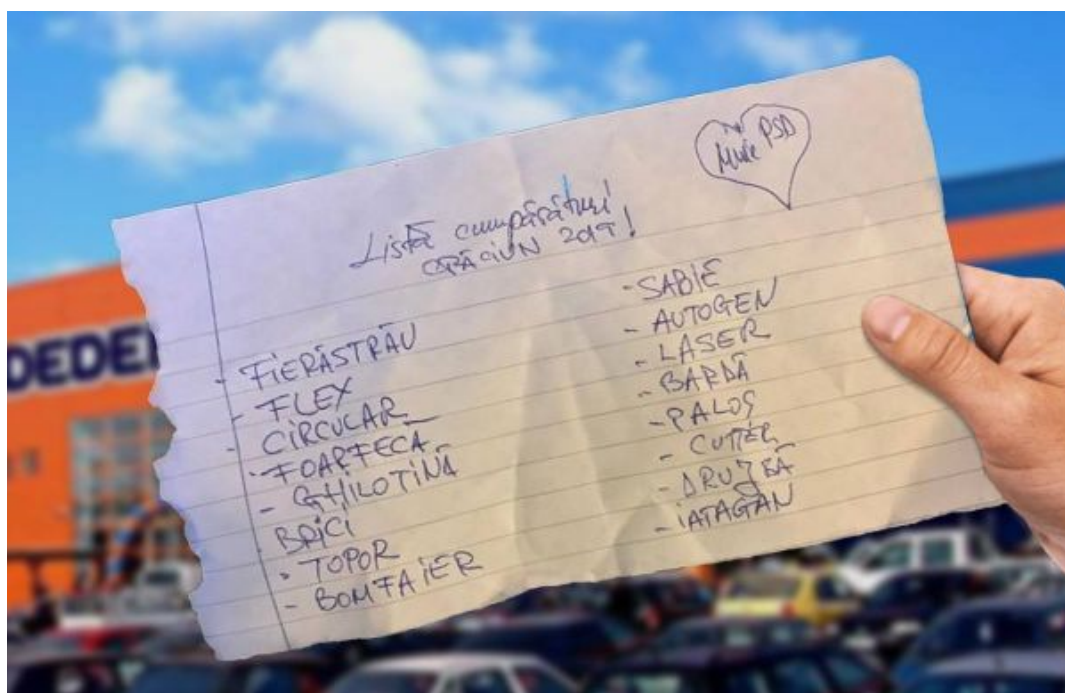 Muie PSD
Listă cumpărături
CRĂCIUN 2019!
- FIERĂSTRĂU
- FLEX
CIRCULAR
- FOARFECĂ
- GHILOTINĂ
BRICI
- TOPOR
- BOMFAIER
- SABIE
- AUTOGEN
- LASER
- BARDĂ
- PALOȘ
- CUTTER
- DRUJBĂ
- IATAGAN
DEDE